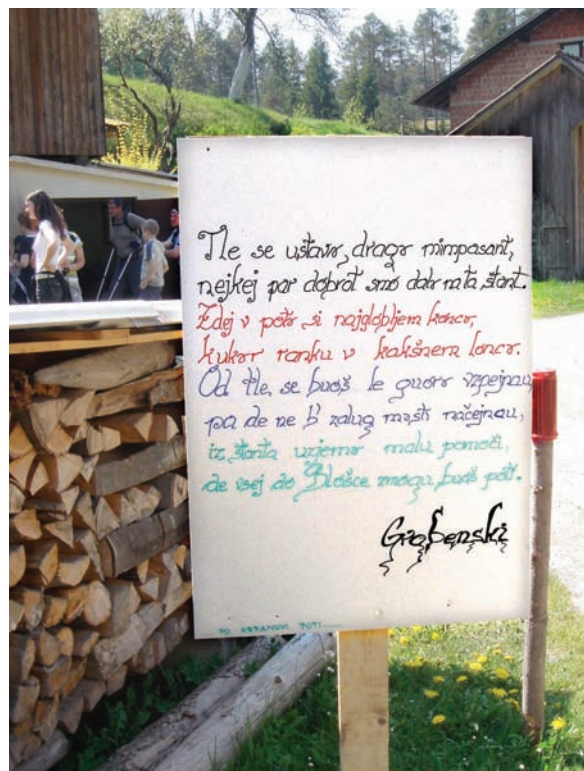 Tle se ustavr, dragr mimpasant,
nejkej par dobrot smo dahr na ta štant.
Zdej v potr si najglobljem koncr,
kukrr ranku v kakšnem loncr.
Od tle se buoš le guorr vzpejnau,
pa de ne b' zalug masti načejnau,
iz štanta uzjemr malu pomoči,
de vsej do Blošce mogu buoš pôti.
Grabenski
PO URBANOVI POTI